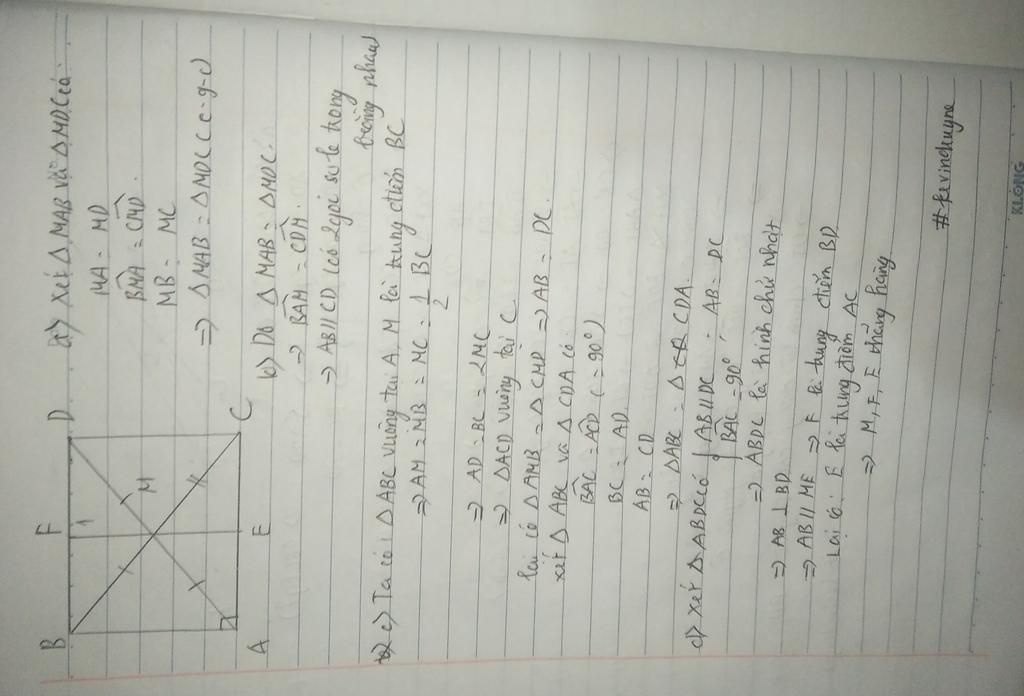 B F D
1
M
A E C
a) Xét Δ MAB và Δ MDC có:
MA = MD
BMA = CMD.
MB = MC
=> Δ MAB = Δ MDC (c-g-c)
b) Do Δ MAB = Δ MDC.
=> BAM = CDM.
=> AB // CD (có 2 góc so le trong
bằng nhau)
c) Ta có: Δ ABC vuông tại A, M là trung điểm BC
=> AM = MB = MC = 1/2 BC
=> AD = BC = 2MC
=> Δ ACD vuông tại C
Lại có Δ AMB = Δ CMD => AB = DC.
Xét Δ ABC và Δ CDA có:
BAC = ACD (= 90°)
BC = AD
AB = CD
=> Δ ABC = Δ CDA.
d) Xét Δ ABDC có { AB // DC ; AB = DC
BAC = 90°
=> ABDC là hình chữ nhật
=> AB ⊥ BD
=> AB // MF => F là trung điểm BD
Lại có: E là trung điểm AC
=> M, F, E thẳng hàng
#kevinchuyne
KLONG